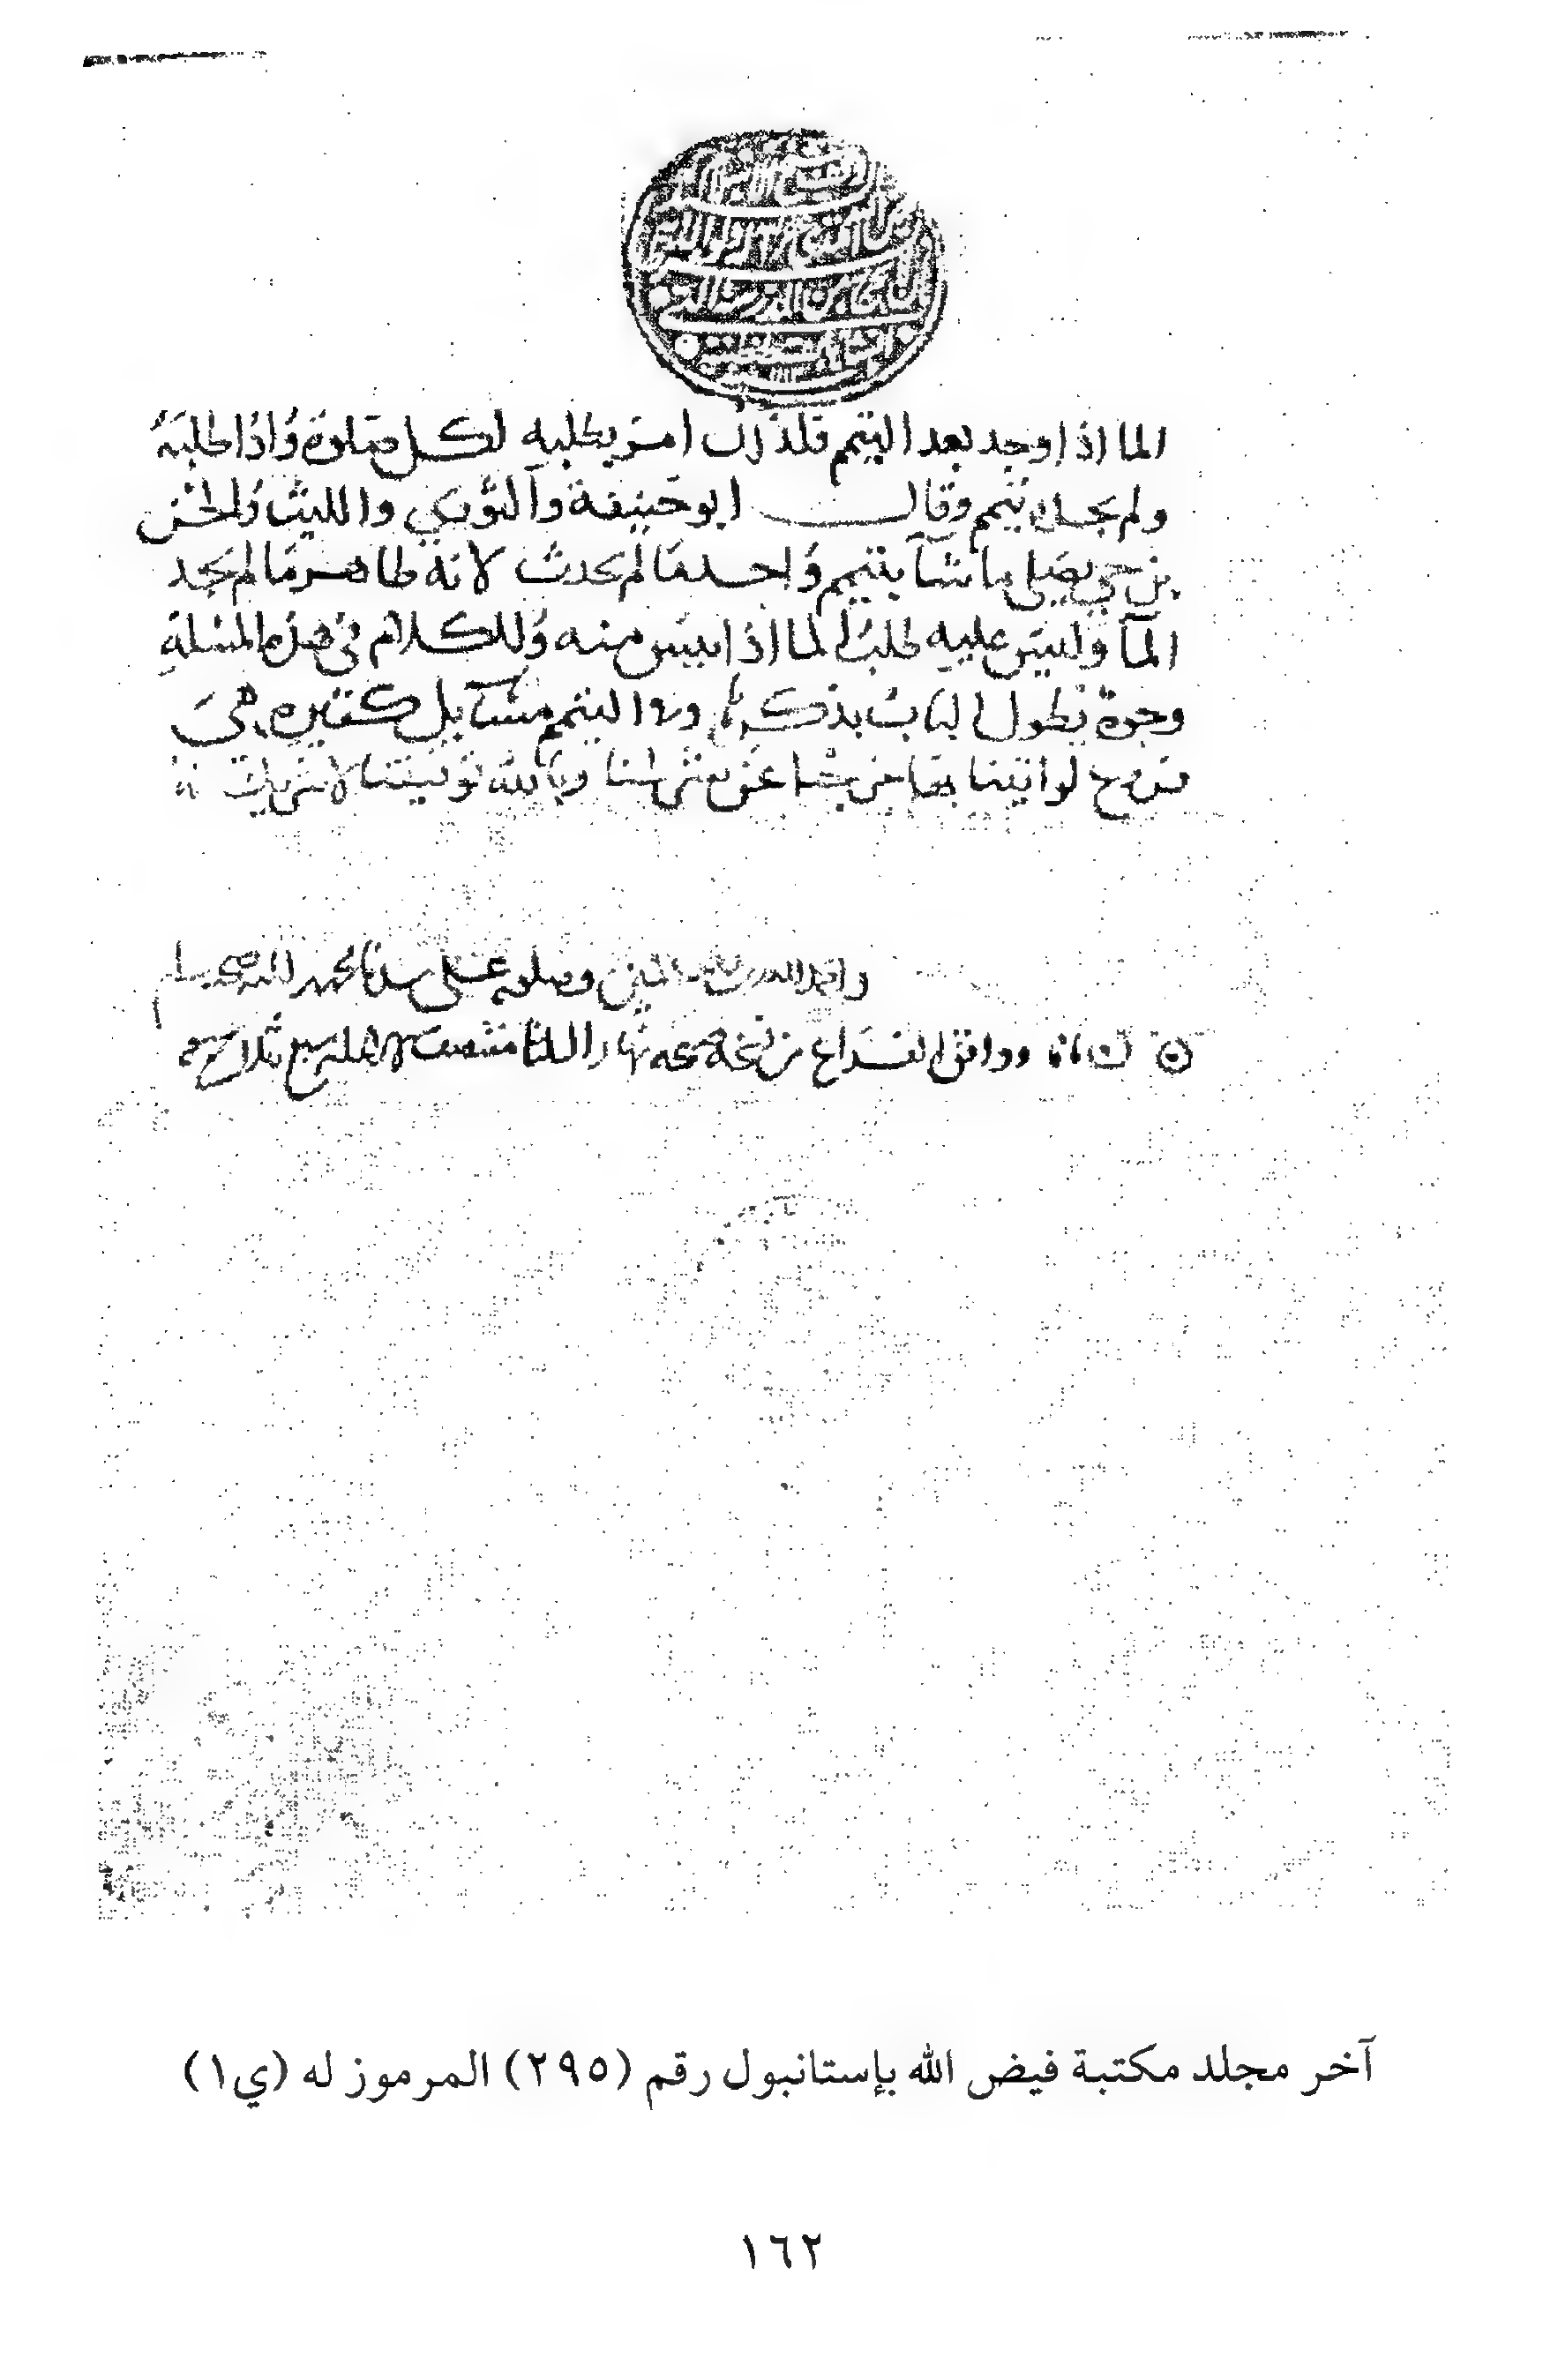 الما اذا وجد بعد التيمم فلذلك امر بطلبه لكل صلوة واذا طلبه
ولم يجده تيمم وقال ابو حنيفة والثوري والليث والحسن
بن حي يصلي ما شا بتيمم واحد ما لم يحدث لانه طاهر ما لم يجد
المآ وليس عليه طلب الما اذا يئس منه وللكلام في هذه المسلة
وجوه يطول الباب بذكرها وفي التيمم مسآيل كثيره هي
فروع لو اتينا بها خرجنا عن شرطنا وبالله توفيقنا لا شريك
والحمد لله رب العالمين وصلوته على سيدنا محمد
ووافق الفراغ من نسخه نهار الثلثا منتصف
آخر مجلد مكتبة فيض الله بإستانبول رقم (٢٩٥) المرموز له (ي١)
١٦٢